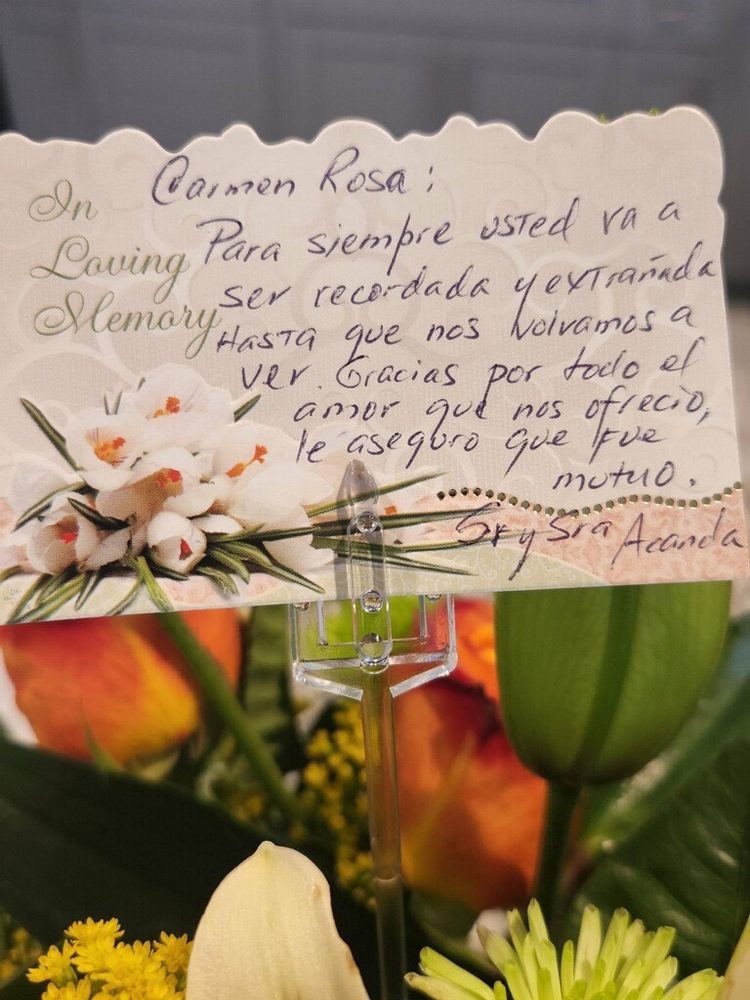 In
Loving
Memory
Carmen Rosa:
Para siempre usted va a
ser recordada y extrañada
Hasta que nos volvamos a
ver. Gracias por todo el
amor que nos ofrecio,
le aseguro que fue
mutuo.
Sr y Sra Acanda